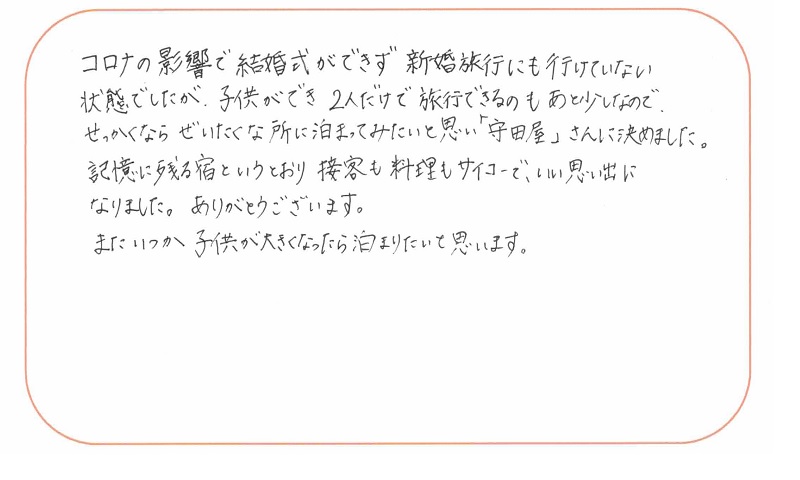 コロナの影響で結婚式ができず 新婚旅行にも行けていない
状態でしたが、子供ができ 2人だけで旅行できるのもあと少しなので、
せっかくなら ぜいたくな所に泊まってみたいと思い「守田屋」さんに決めました。
記憶に残る宿というとおり 接客も料理もサイコーで、いい思い出に
なりました。ありがとうございます。
またいつか 子供が大きくなったら泊まりたいと思います。